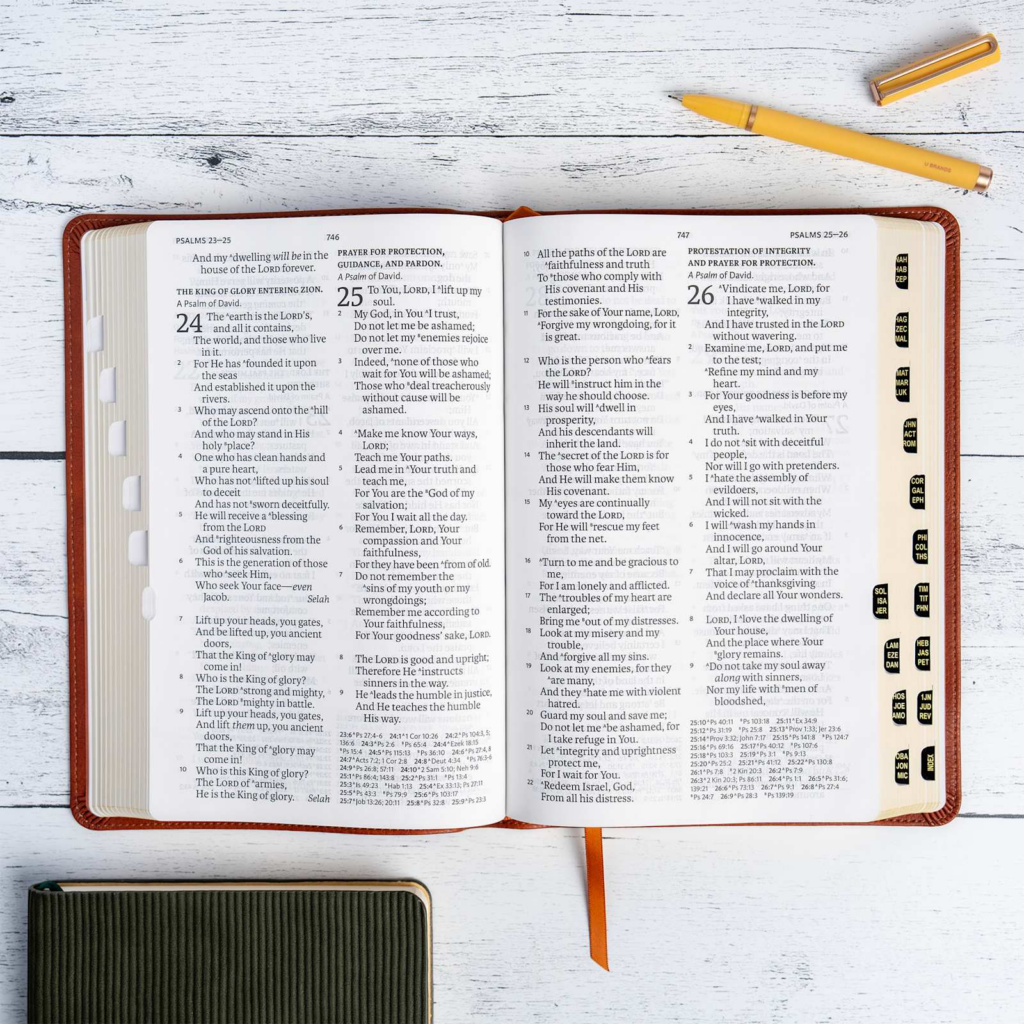 U BRANDS
PSALMS 23–25
746
And my ᴬdwelling will be in the
house of the LORD forever.
THE KING OF GLORY ENTERING ZION.
A Psalm of David.
24 The ᴬearth is the LORD's,
and all it contains,
The world, and those who live
in it.
2 For He has ᴬfounded it upon
the seas
And established it upon the
rivers.
3 Who may ascend onto the ᴬhill
of the LORD?
And who may stand in His
holy ᴮplace?
4 One who has clean hands and
a pure heart,
Who has not ᴬlifted up his soul
to deceit
And has not ᴮsworn deceitfully.
5 He will receive a ᴬblessing
from the LORD
And ᴮrighteousness from the
God of his salvation.
6 This is the generation of those
who ᴬseek Him,
Who seek Your face—even
Jacob. Selah
7 Lift up your heads, you gates,
And be lifted up, you ancient
doors,
That the King of ᴬglory may
come in!
8 Who is the King of glory?
The LORD ᴬstrong and mighty,
The LORD ᴮmighty in battle.
9 Lift up your heads, you gates,
And lift them up, you ancient
doors,
That the King of ᴬglory may
come in!
10 Who is this King of glory?
The LORD of ᴬarmies,
He is the King of glory. Selah
PRAYER FOR PROTECTION,
GUIDANCE, AND PARDON.
A Psalm of David.
25 To You, LORD, I ᴬlift up my
soul.
2 My God, in You ᴬI trust,
Do not let me be ashamed;
Do not let my ᴮenemies rejoice
over me.
3 Indeed, ᴬnone of those who
wait for You will be ashamed;
Those who ᴮdeal treacherously
without cause will be
ashamed.
4 ᴬMake me know Your ways,
LORD;
Teach me Your paths.
5 Lead me in ᴬYour truth and
teach me,
For You are the ᴮGod of my
salvation;
For You I wait all the day.
6 Remember, LORD, Your
compassion and Your
faithfulness,
For they have been ᴬfrom of old.
7 Do not remember the
ᴬsins of my youth or my
wrongdoings;
Remember me according to
Your faithfulness,
For Your goodness' sake, LORD.
8 The LORD is good and upright;
Therefore He ᴬinstructs
sinners in the way.
9 He ᴬleads the humble in justice,
And He teaches the humble
His way.
747
PSALMS 25–26
10 All the paths of the LORD are
ᴬfaithfulness and truth
To ᴮthose who comply with
His covenant and His
testimonies.
11 For the sake of Your name, LORD,
ᴬForgive my wrongdoing, for it
is great.
12 Who is the person who ᴬfears
the LORD?
He will ᴮinstruct him in the
way he should choose.
13 His soul will ᴬdwell in
prosperity,
And his descendants will
inherit the land.
14 The ᴬsecret of the LORD is for
those who fear Him,
And He will make them know
His covenant.
15 My ᴬeyes are continually
toward the LORD,
For He will ᴮrescue my feet
from the net.
16 ᴬTurn to me and be gracious to
me,
For I am lonely and afflicted.
17 The ᴬtroubles of my heart are
enlarged;
Bring me ᴮout of my distresses.
18 Look at my misery and my
trouble,
And ᴬforgive all my sins.
19 Look at my enemies, for they
ᴬare many,
And they ᴮhate me with violent
hatred.
20 Guard my soul and save me;
Do not let me ᴬbe ashamed, for
I take refuge in You.
21 Let ᴬintegrity and uprightness
protect me,
For I wait for You.
22 ᴬRedeem Israel, God,
From all his distress.
PROTESTATION OF INTEGRITY
AND PRAYER FOR PROTECTION.
A Psalm of David.
26 ᴬVindicate me, LORD, for
I have ᴮwalked in my
integrity,
And I have trusted in the LORD
without wavering.
2 Examine me, LORD, and put me
to the test;
ᴬRefine my mind and my
heart.
3 For Your goodness is before my
eyes,
And I have ᴬwalked in Your
truth.
4 I do not ᴬsit with deceitful
people,
Nor will I go with pretenders.
5 I ᴬhate the assembly of
evildoers,
And I will not sit with the
wicked.
6 I will ᴬwash my hands in
innocence,
And I will go around Your
altar, LORD,
7 That I may proclaim with the
voice of ᴬthanksgiving
And declare all Your wonders.
8 LORD, I ᴬlove the dwelling of
Your house,
And the place where Your
ᴮglory remains.
9 ᴬDo not take my soul away
along with sinners,
Nor my life with ᴮmen of
bloodshed,
HAB
ZEP
HAG
ZEC
MAL
MAT
MAR
LUK
JHN
ACT
ROM
COR
GAL
EPH
PHI
COL
THS
SOL
ISA
JER
TIM
TIT
PHN
LAM
EZE
DAN
HEB
JAS
PET
HOS
JOE
AMO
1JN
JUD
REV
OBA
JON
MIC
INDEX